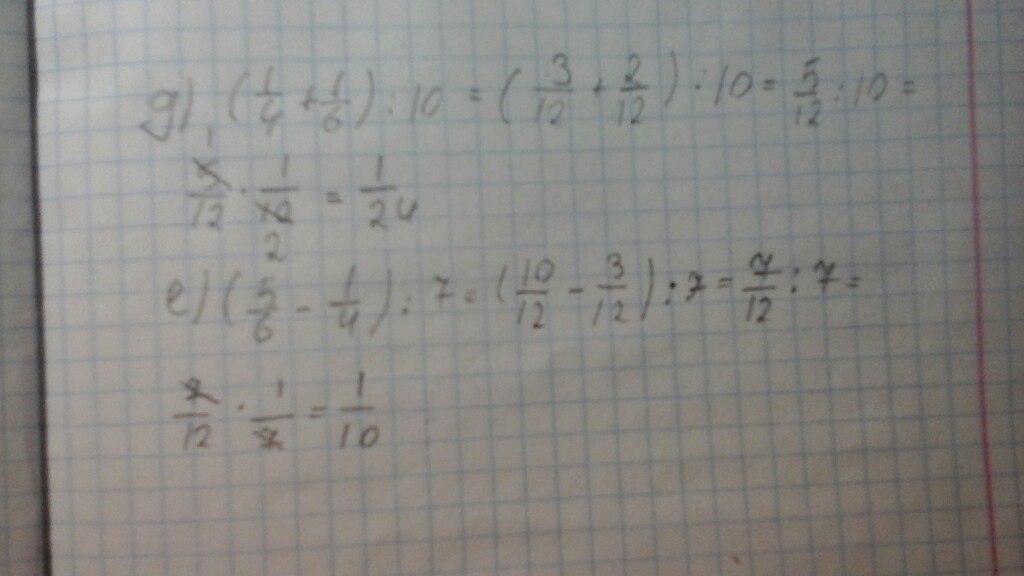 д) (1/4 + 1/6) : 10 = (3/12 + 2/12) : 10 = 5/12 : 10 =
5/12 · 1/10 = 1/24
1 2
е) (5/6 - 1/4) : 7 = (10/12 - 3/12) : 7 = 7/12 : 7 =
7/12 · 1/7 = 1/10